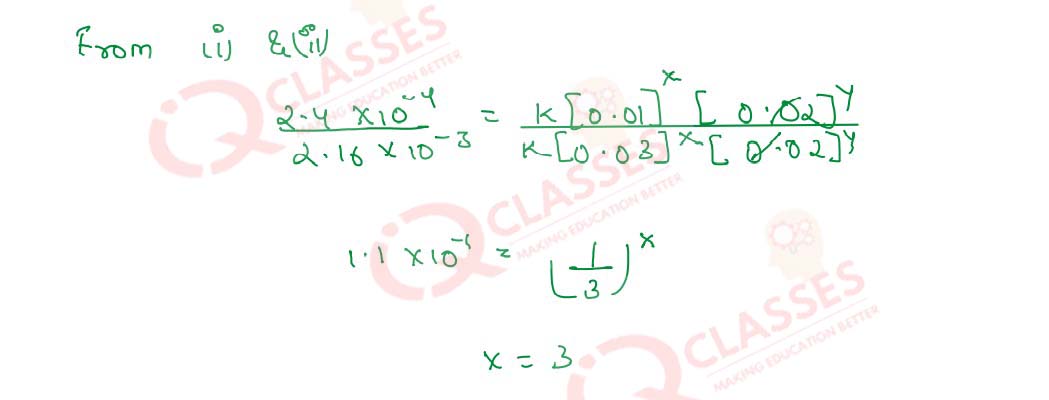 From (i) &(ii)
2.4 ×10⁻⁴ / 2.16 ×10⁻³ = K[0.01]ˣ [0.02]ʸ / K[0.03]ˣ [0.02]ʸ
1.1 ×10⁻¹ = (1/3)ˣ
x = 3
IQ CLASSES
MAKING EDUCATION BETTER
IQ CLASSES
MAKING EDUCATION BETTER
IQ CLASSES
MAKING EDUCATION BETTER